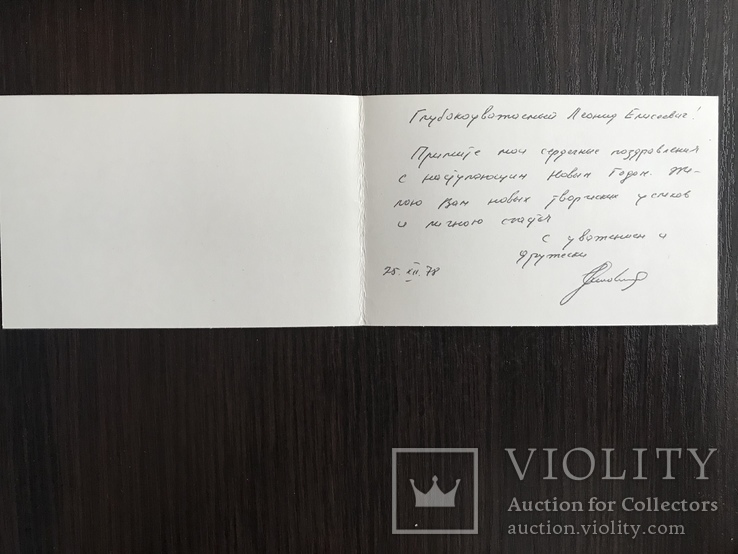 Глубокоуважаемый Леонид Елисеевич!
Примите мои сердечные поздравления
с наступающим Новым Годом. Же-
лаю Вам новых творческих успехов
и личного счастья
с уважением и
дружески
25. XII. 78
VIOLITY
Auction for Collectors
auction.violity.com